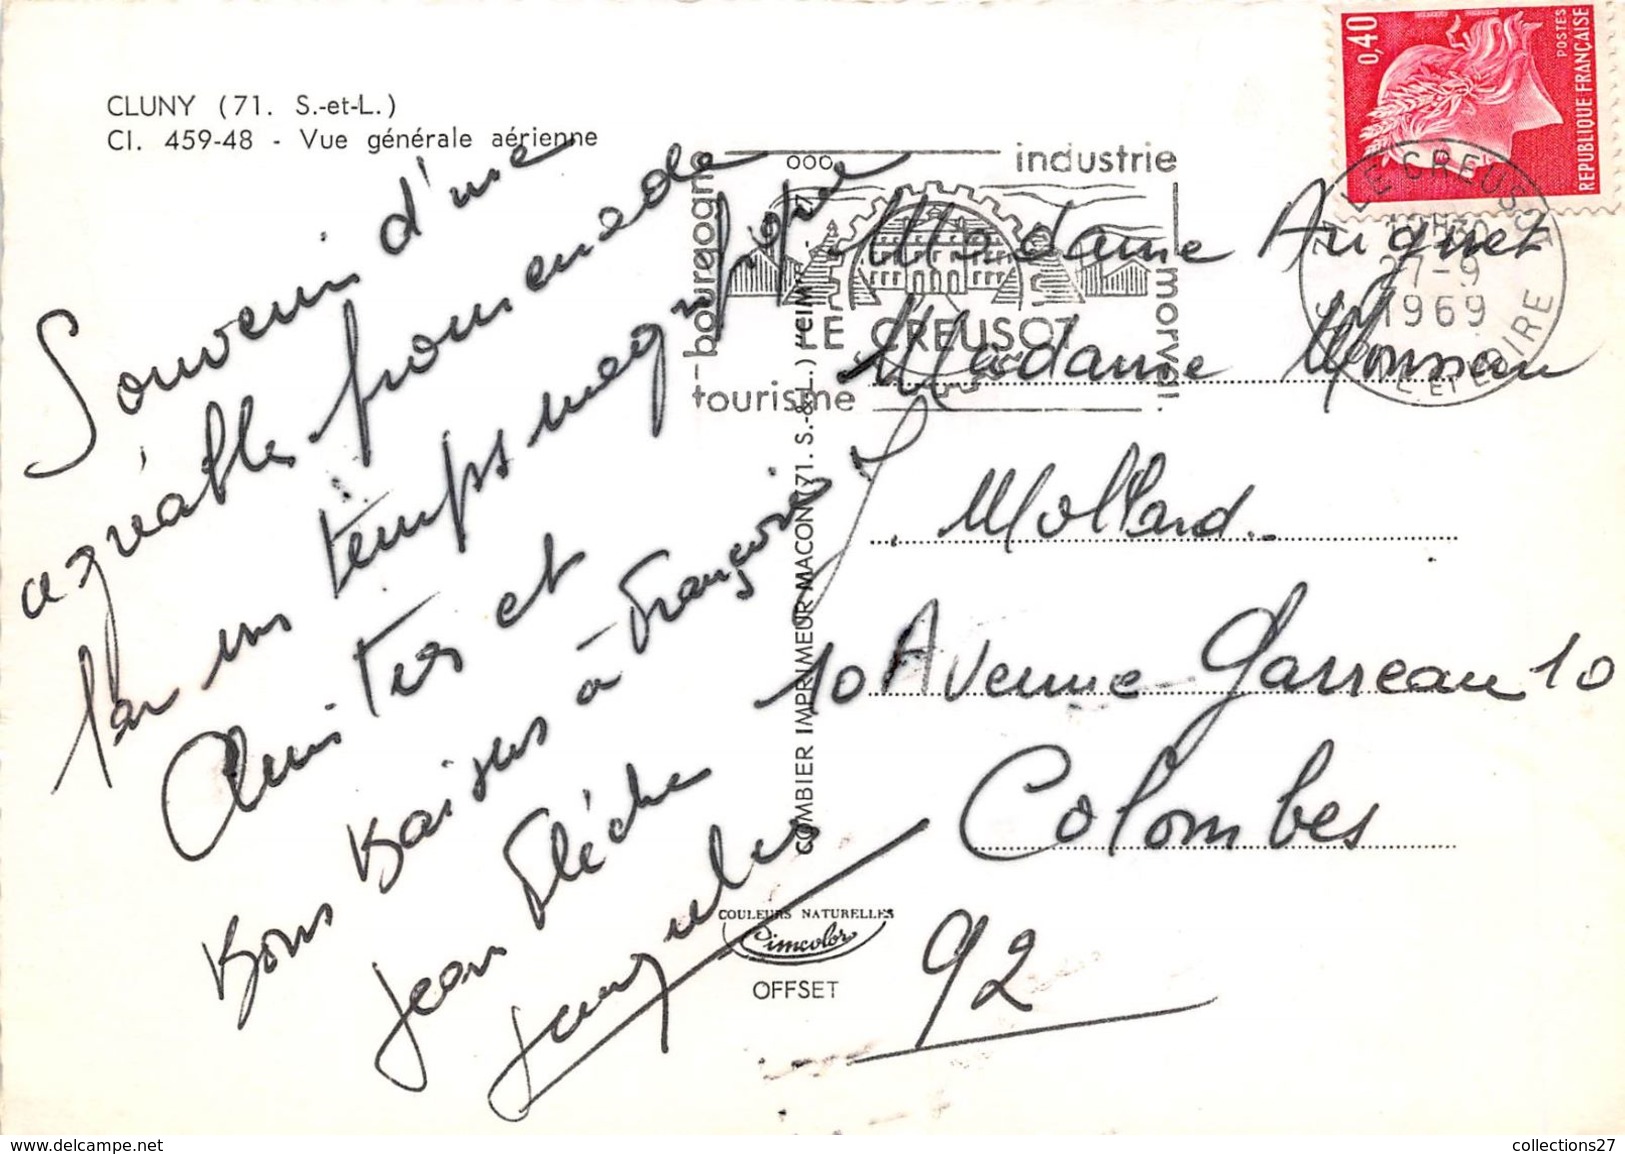 CLUNY (71. S.-et-L.)
Cl. 459-48 - Vue générale aérienne
Souvenir d'une
agréable promenade
par un temps magnifique
Amitiés et
Bons Baisers à François
Jean Flèche
Jacques
COMBIER IMPRIMEUR MACON (71. S.-&-L.) "CIM"
COULEURS NATURELLES
Cimcolor
OFFSET
bourgogne
industrie
morvan
tourisme
LE CREUSOT
0,40
POSTES
REPUBLIQUE FRANÇAISE
71 LE CREUSOT
27-9
1969
SAONE ET LOIRE
Madame Auguet
Madame
Mollard
10 Avenue Garreau 10
Colombes
92
www.delcampe.net
collections27